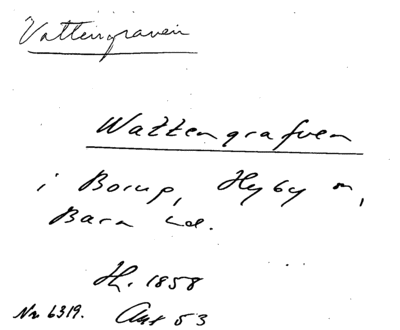 Vattengraven
Wattengrafven
i Borup, Hyby sn,
Bara hd.
H. 1858
No 6319. Ant 53